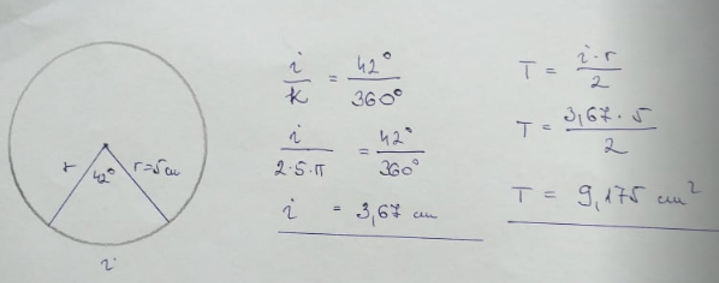 r 42° r=5cm
i
i/k = 42°/360°
i/2·5·π = 42°/360°
i = 3,67 cm
T = i·r/2
T = 3,67·5/2
T = 9,175 cm²